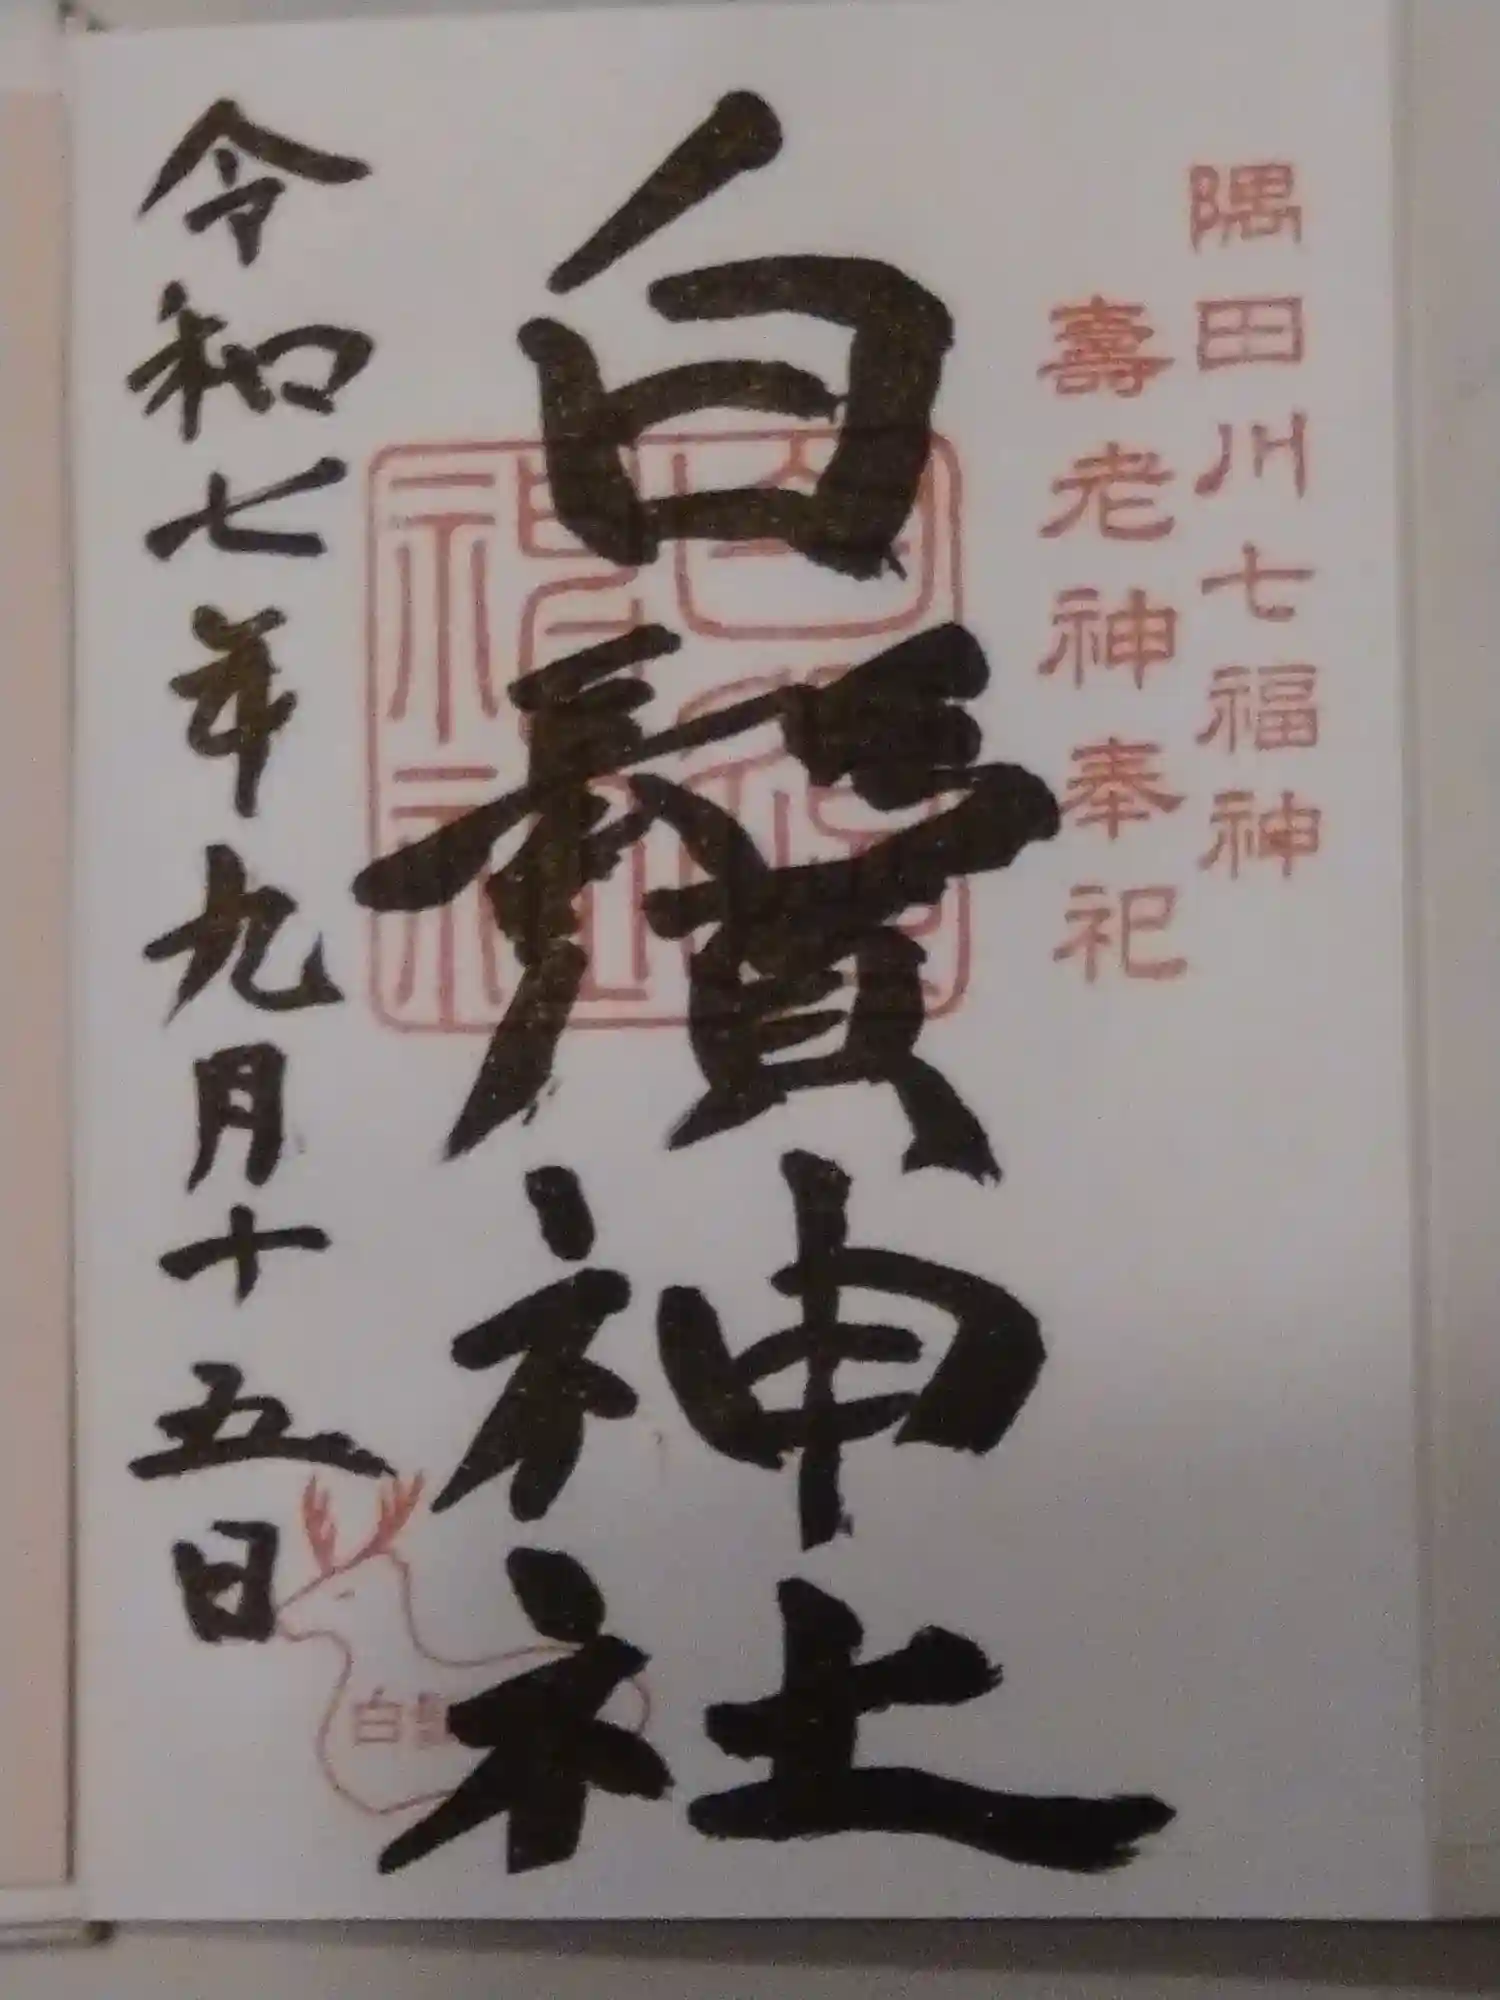 隅田川七福神
壽老神奉祀
白鬚神社
令和七年九月十五日
白鬚